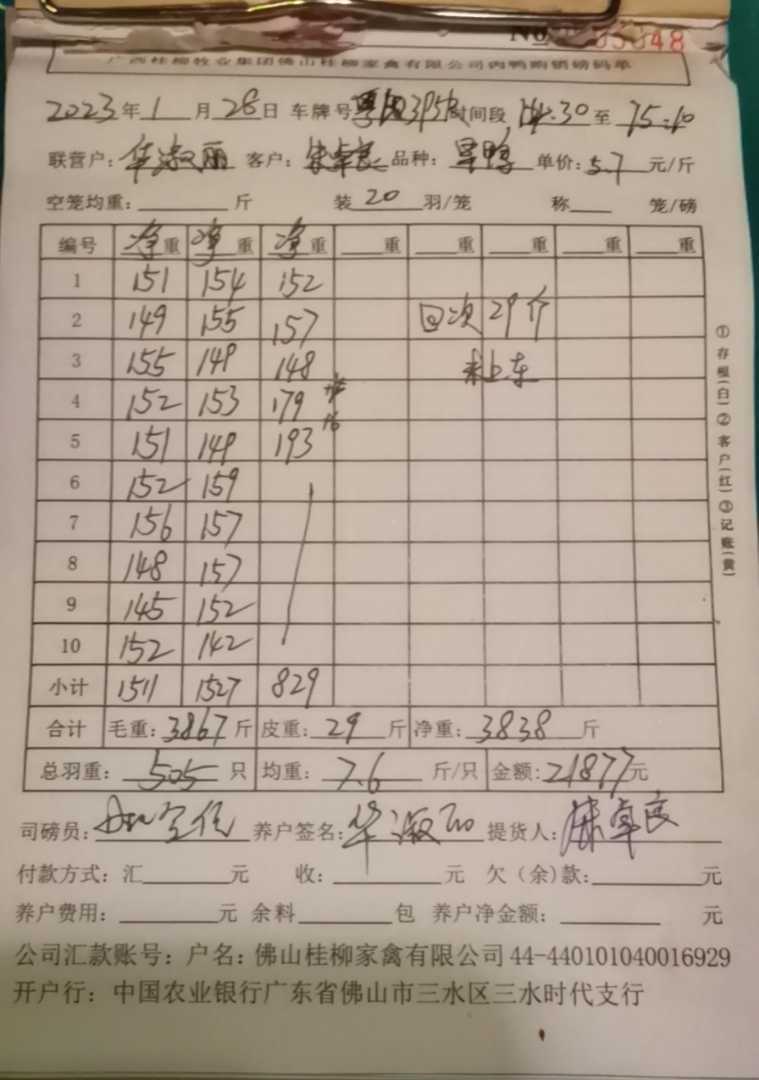 No 05048
广西桂柳牧业集团佛山桂柳家禽有限公司肉鸭购销磅码单
2023年1月28日 车牌号 时间段 14:30至15:10
联营户:华淑丽 客户:朱卓良 品种:旱鸭 单价:5.7元/斤
空笼均重:斤 装20羽/笼 称 笼/磅
编号 净重 净重 净重 重 重 重 重 重
1 151 154 152
2 149 155 157 回次 29个
3 155 149 148 未上车
4 152 153 179
5 151 149 193 16
6 152 159
7 156 157
8 148 157
9 145 152
10 152 142
小计 1511 1527 829
合计 毛重:3867斤 皮重:29斤 净重:3838斤
总羽重:505只 均重:7.6斤/只 金额:21877元
司磅员: 养户签名:华淑丽 提货人:朱卓良
付款方式:汇 元 收: 元 欠(余)款: 元
养户费用: 元 余料 包 养户净金额: 元
公司汇款账号:户名:佛山桂柳家禽有限公司 44-440101040016929
开户行:中国农业银行广东省佛山市三水区三水时代支行
①存根(白)②客户(红)③记账(黄)